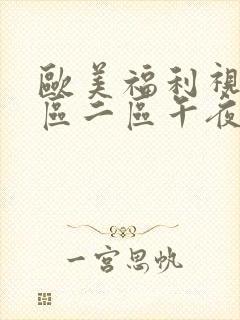 歐美福利視
區二區午夜
一宮思帆